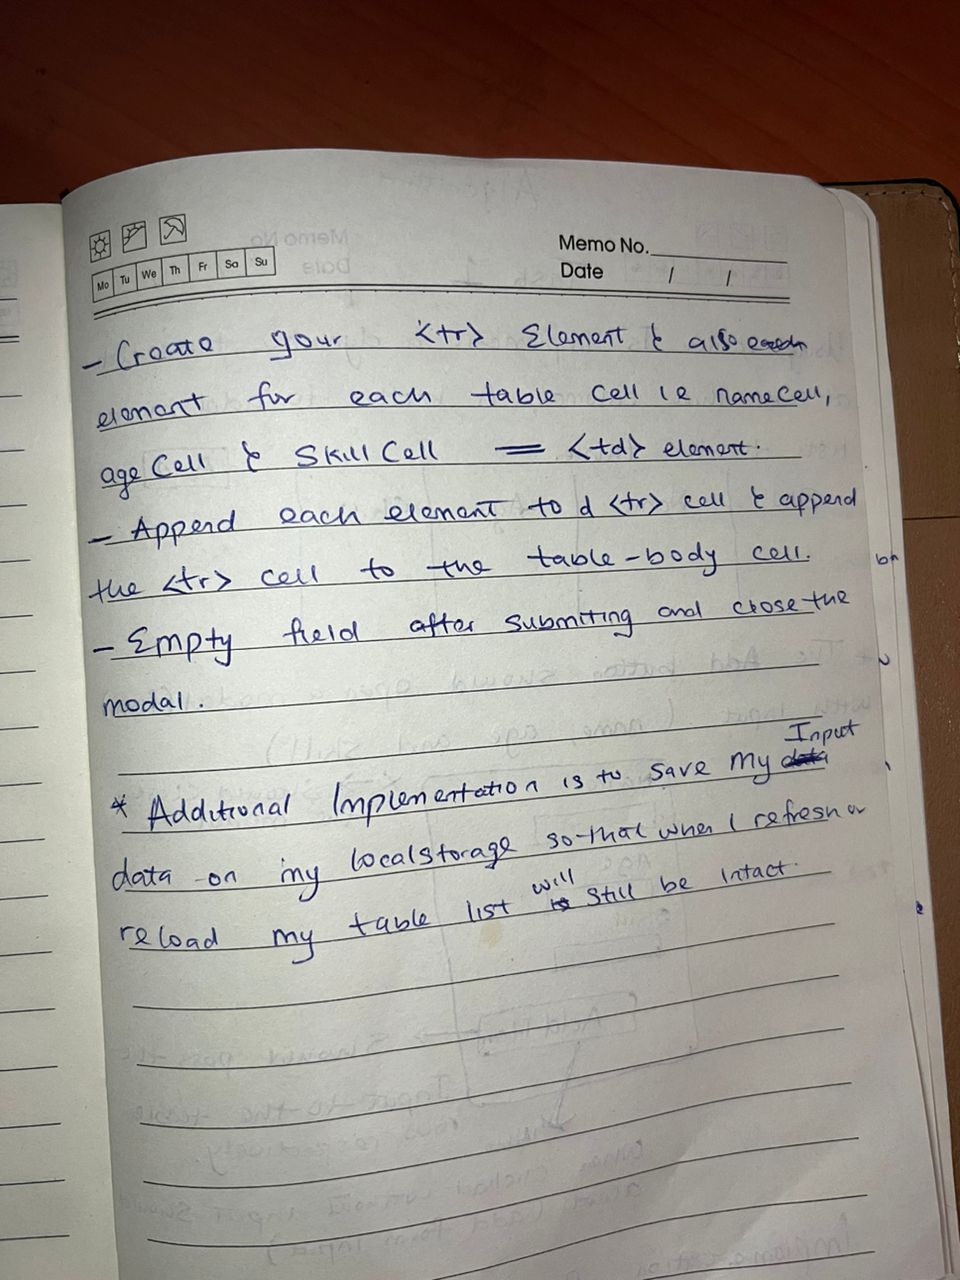 Memo No.
Date / /
Mo Tu We Th Fr Sa Su
- Create your <tr> Element & also
element for each table cell ie nameCell,
age Cell & Skill Cell = <td> element.
- Append each element to d <tr> cell & append
the <tr> cell to the table-body cell.
- Empty field after submiting and close the
modal.
Input
* Additional Implementation is to save my data
data on my localstorage so that when I refresh or
will
reload my table list is still be intact.